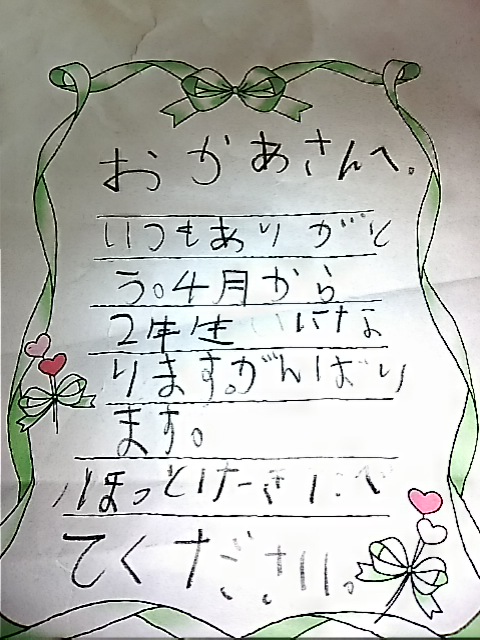 おかあさんへ.
いつもありがと
う。4月から
2年生になな
ります。がんばり
ます。
ほっとけーきたべ
てください。